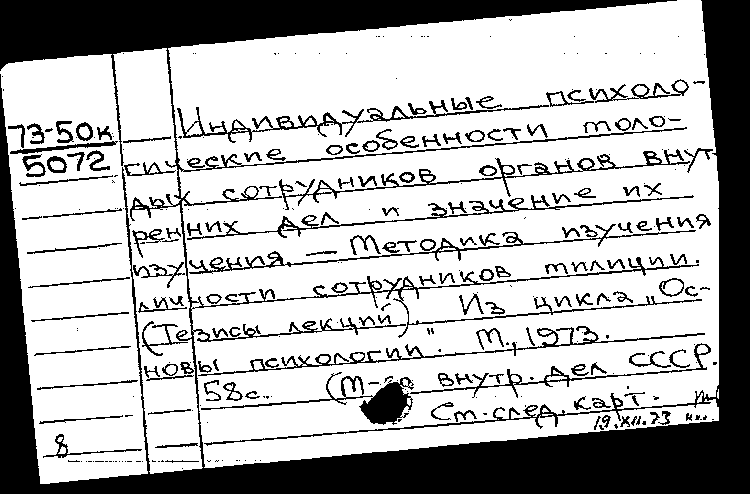 73-50к
5072
Индивидуальные психоло-
гические особенности моло-
дых сотрудников органов внут-
ренних дел и значение их
изучения. — Методика изучения
личности сотрудников милиции.
(Тезисы лекций). Из цикла „Ос-
новы психологии". М., 1973.
58с. (М-во внутр. дел СССР.
Ст. след. карт.
19.XII.73
8